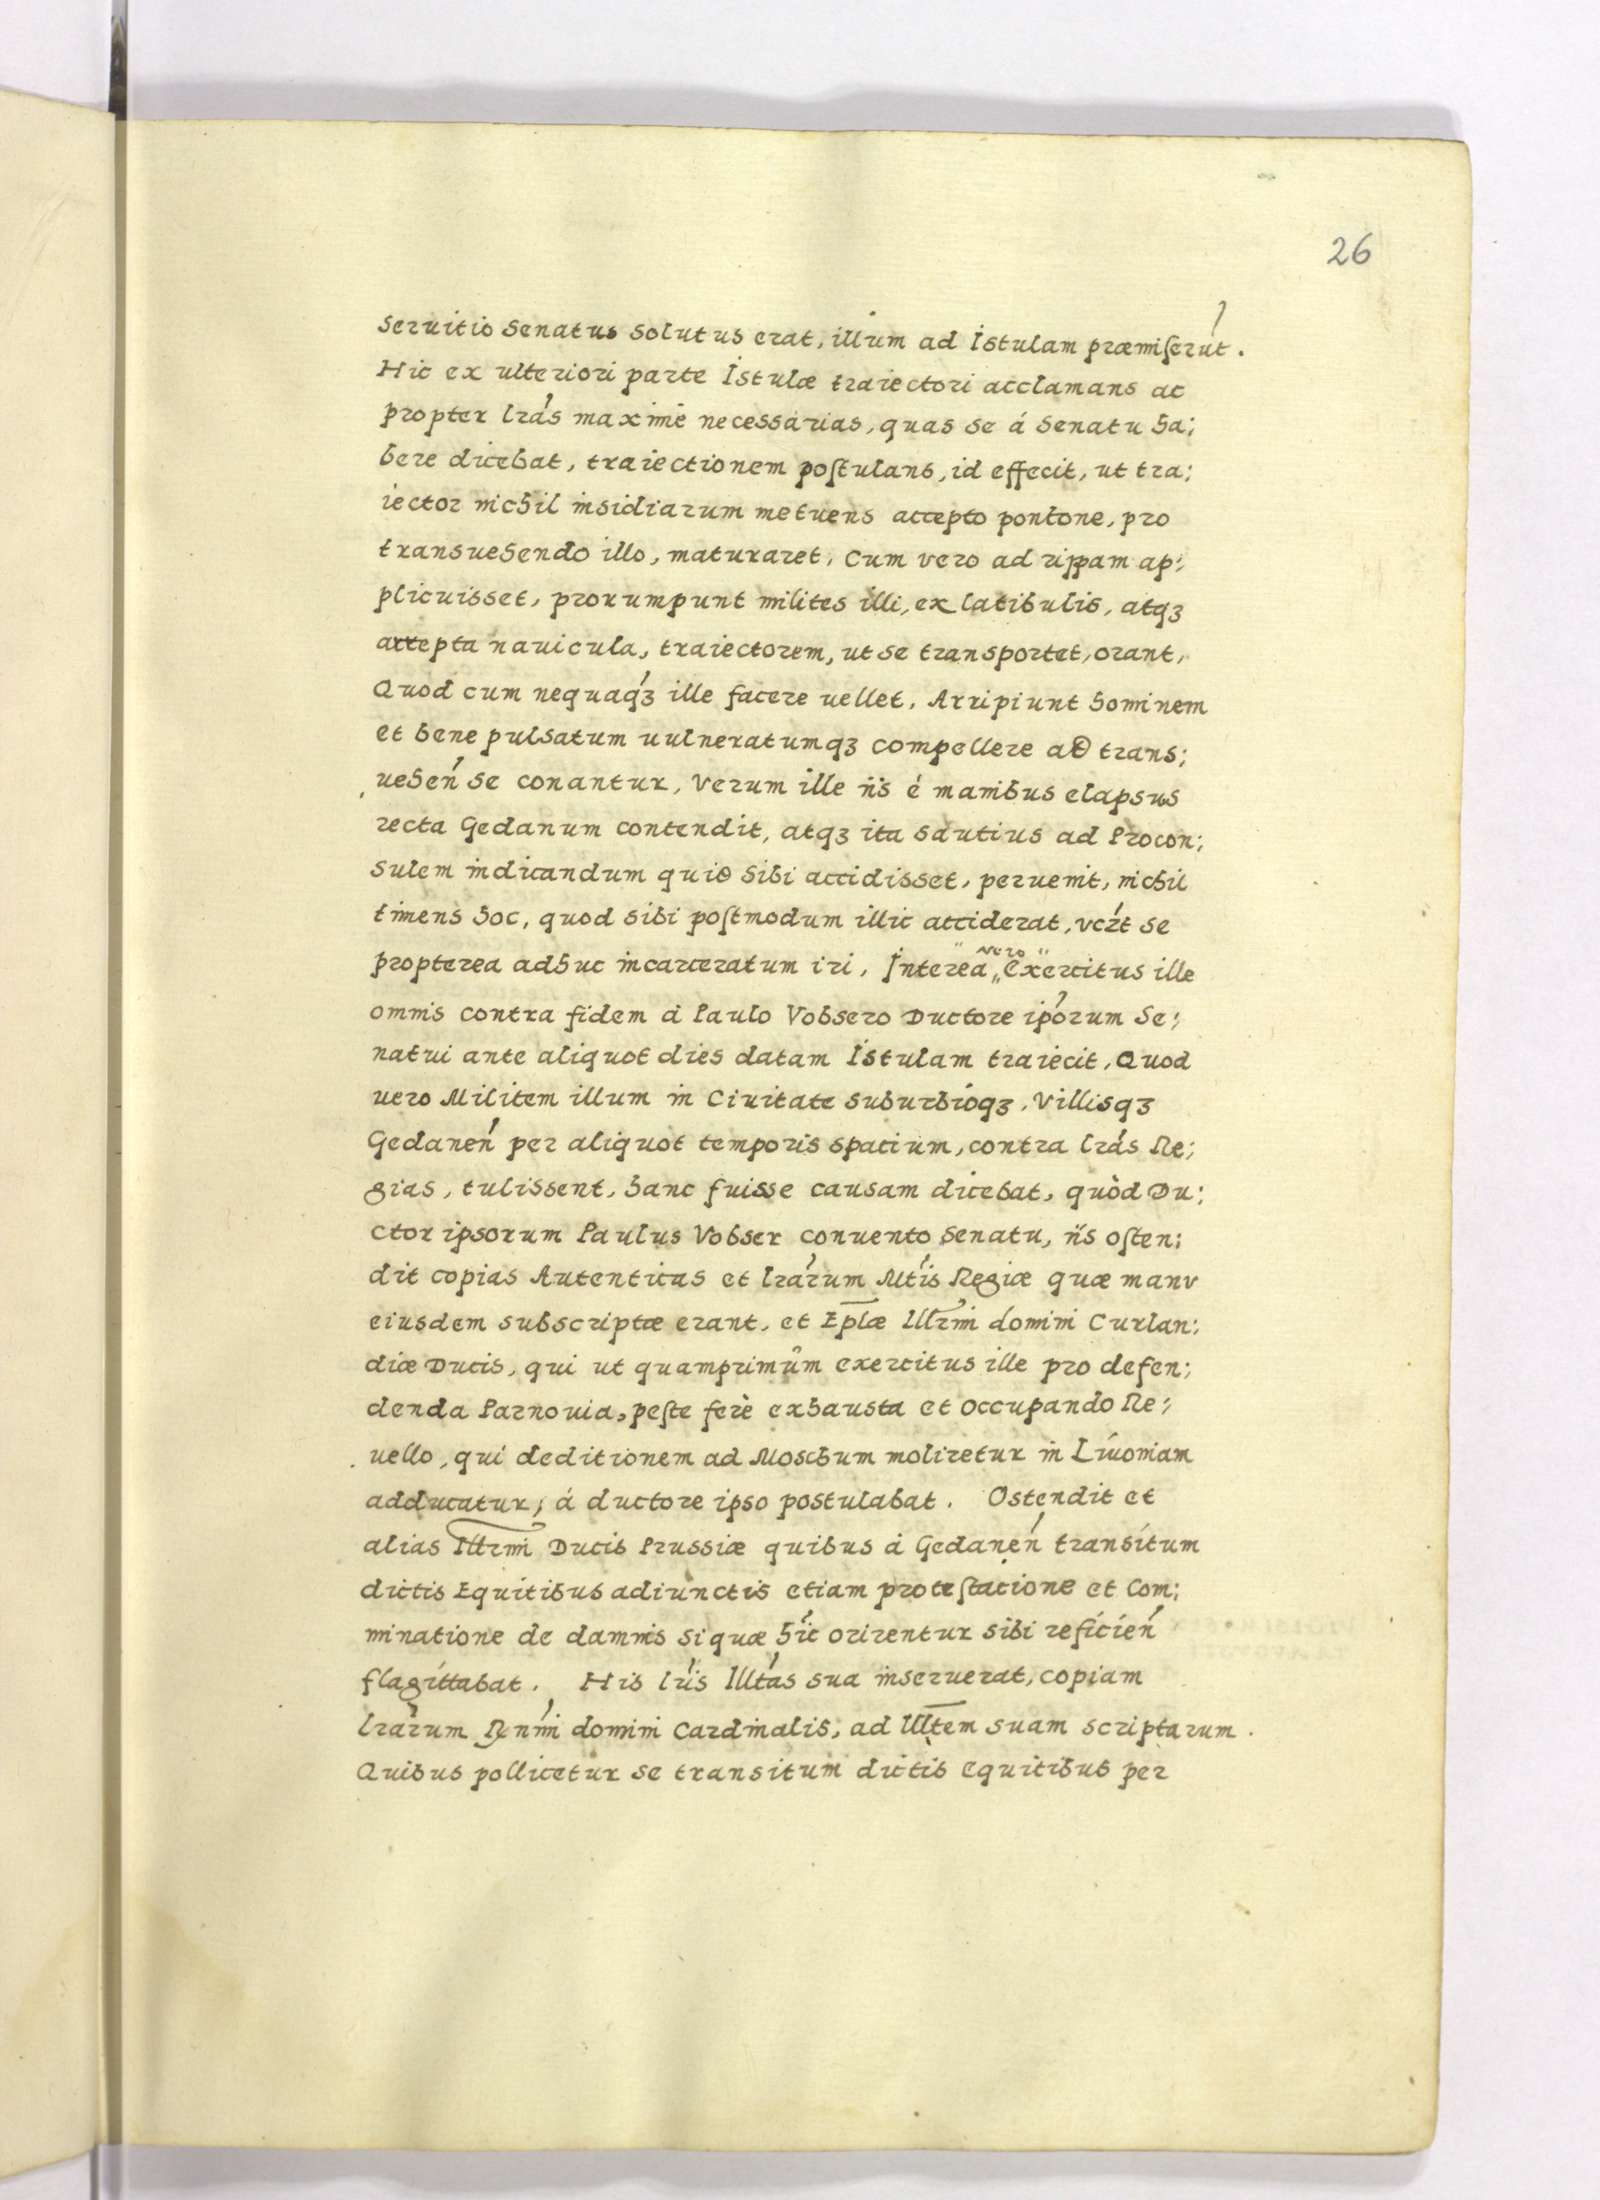 26
Seruitio Senatus solutus erat, illum ad Istulam præmiserut́.
Hic ex ulteriori parte Istulæ traiectori acclamans ac
propter lrás maximè necessarias, quas se á Senatu ha;
bere dicebat, traiectionem postulans, id effecit, ut tra;
iector nichil insidiarum metuens accepto pontone, pro
transuehendo illo, maturaret, Cum vero ad rippam ap;
plicuisset, prorumpunt milites illi, ex latibulis, atqȝ
arrepta nauicula, traiectorem, ut se transportet, orant,
Quod cum nequaqȝ́ ille facere uellet, Arripiunt hominem
et bene pulsatum uulneratumqȝ compellere ad trans;
uehen̄ se conantur, Verum ille iis é manibus elapsus
recta Gedanum contendit, atqȝ ita sautius ad Procon;
sulem indicandum quid sibi accidisset, peruenit, nichil
timens hoc, quod sibi postmodum illic acciderat, vcźt se
propterea adhuc incarceratum iri, Interea vero Exercitus ille
omnis contra fidem á Paulo Vobsero Ductore ipórum Se;
natui ante aliquot dies datam Istulam traiecit, Quod
uero Militem illum in Ciuitate suburbiöqȝ, Villisqȝ
Gedaneń per aliquot temporis spatium, contra lrás Re;
gias, tulissent, hanc fuisse causam dicebat, quòd Du;
ctor ipsorum Paulus Vobser conuento Senatu, iis osten;
dit copias Autenticas et lrárum Mtís Regiæ quæ manu
eiusdem subscriptæ erant, et Eplæ Illrmi domini Curlan;
diæ Ducis, qui ut quamprimûm exercitus ille pro defen;
denda Parnouia, peste ferè exhausta et occupando Re;
uello, qui deditionem ad Moschum moliretur in Liuoniam
adducatur, á ductore ipso postulabat. Ostendit et
alias Illrmi Ducis Prussiæ quibus á Gedaneń transitum
dictis Equitibus adiunctis etiam protestatione et Com;
minatione de damnis si quæ híc orirentur sibi reficień
flagittabat. His lrís Illtás sua inseruerat, copiam
lrárum Rn̄mi domini Cardinalis, ad Illtem suam scriptarum.
Quibus pollicetur se transitum dictis equitibus per